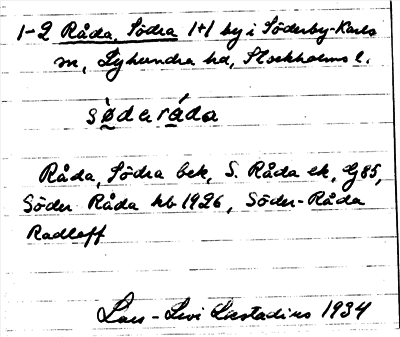 1-2 Råda, Södra 1+1 by i Söderby-Karls
sn, Lyhundra hd, Stockholms l.
sø̀daráda
Råda, Södra bek, S. Råda ek, Gj 85,
Söder Råda hb 1926, Söder-Råda
Radloff
Lars-Levi Læstadius 1934